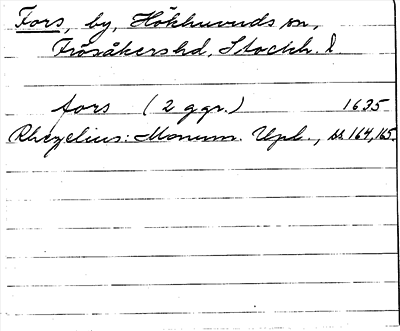 Fors, by, Hökhuvuds sn,
Frösåkers hd, Stockh. l.
fors (2 ggr.) 1635
Rhezelius: Monum. Upl., ss 164, 165.